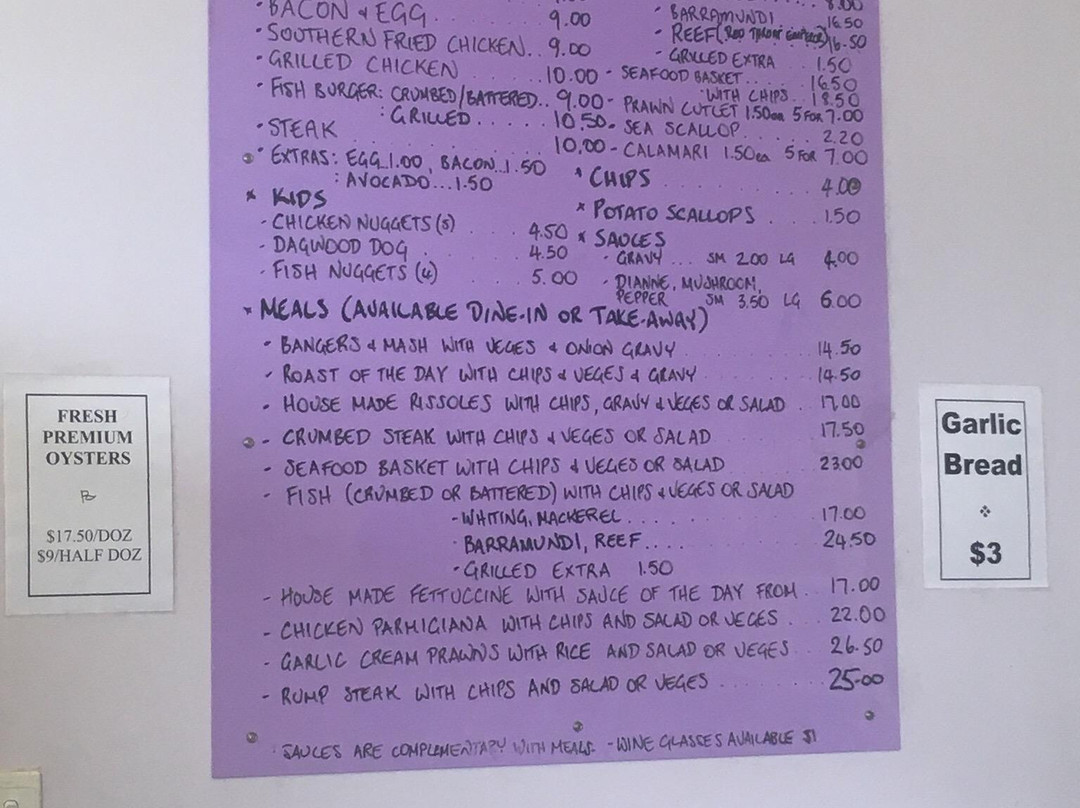 · BACON & EGG. 9.00
· SOUTHERN FRIED CHICKEN.. 9.00
· GRILLED CHICKEN 10.00
· FISH BURGER: CRUMBED/BATTERED.. 9.00
: GRILLED..... 10.50
· STEAK 10.00
· EXTRAS: EGG..1.00, BACON..1.50
: AVOCADO...1.50
* KIDS
- CHICKEN NUGGETS (5) 4.50
- DAGWOOD DOG 4.50
- FISH NUGGETS (4) 5.00
8.00
· BARRAMUNDI 16.50
· REEF (RED THROAT EMPEROR) 16.50
· GRILLED EXTRA 1.50
- SEAFOOD BASKET... 16.50
WITH CHIPS.. 18.50
- PRAWN CUTLET 1.50ea 5 FOR 7.00
- SEA SCALLOP.... 2.20
- CALAMARI 1.50ea 5 FOR 7.00
* CHIPS........ 4.00
* POTATO SCALLOPS.... 1.50
* SAUCES
· GRAVY... SM 2.00 LG 4.00
· DIANNE, MUSHROOM,
PEPPER SM 3.50 LG 6.00
* MEALS (AVAILABLE DINE-IN OR TAKE-AWAY)
· BANGERS & MASH WITH VEGES & ONION GRAVY 14.50
· ROAST OF THE DAY WITH CHIPS & VEGES & GRAVY 14.50
· HOUSE MADE RISSOLES WITH CHIPS, GRAVY & VEGES OR SALAD.. 17.00
- CRUMBED STEAK WITH CHIPS & VEGES OR SALAD 17.50
- SEAFOOD BASKET WITH CHIPS & VEGES OR SALAD 23 00
- FISH (CRUMBED OR BATTERED) WITH CHIPS & VEGES OR SALAD
- WHITING, MACKEREL....... 17.00
· BARRAMUNDI, REEF...... 24.50
· GRILLED EXTRA 1.50
- HOUSE MADE FETTUCCINE WITH SAUCE OF THE DAY FROM.. 17.00
- CHICKEN PARMIGIANA WITH CHIPS AND SALAD OR VEGES.... 22.00
- GARLIC CREAM PRAWNS WITH RICE AND SALAD OR VEGES.. 26.50
- RUMP STEAK WITH CHIPS AND SALAD OR VEGES........ 25.00
· SAUCES ARE COMPLEMENTARY WITH MEALS. - WINE GLASSES AVAILABLE $1
FRESH
PREMIUM
OYSTERS
$17.50/DOZ
$9/HALF DOZ
Garlic
Bread
$3